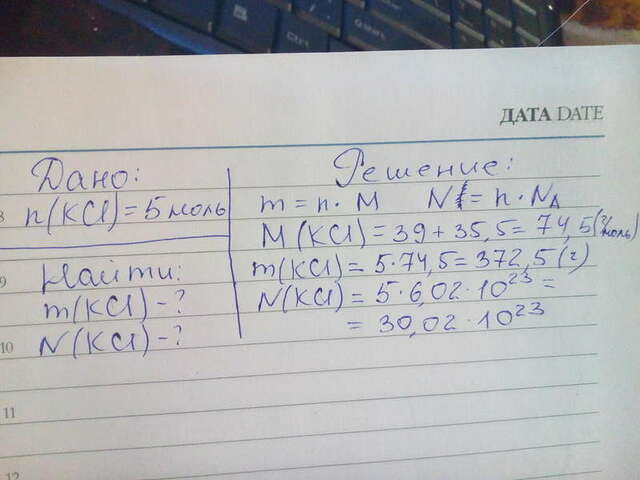 ДАТА DATE
Дано:
8 n(KCl)=5 моль
9 Найти:
m(KCl)-?
10 N(KCl)-?
Решение:
m=n·M N=n·NA
M(KCl)=39+35,5=74,5(г/моль)
m(KCl)=5·74,5=372,5(г)
N(KCl)=5·6,02·10²³=
=30,02·10²³
11
12